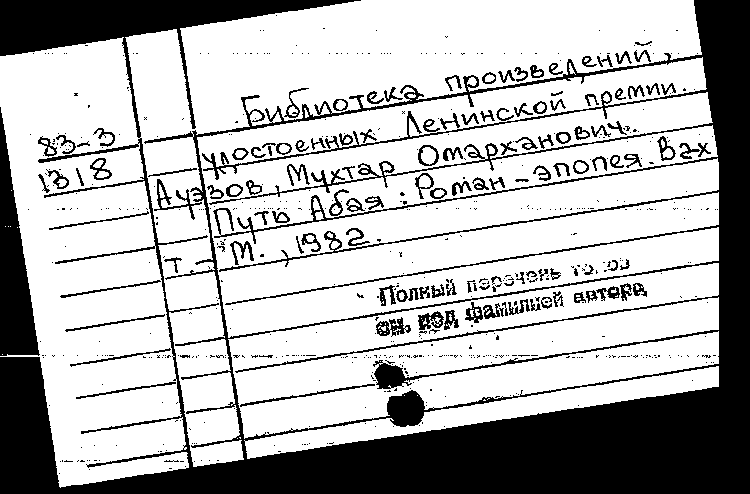 Библиотека произведений,
83-3
удостоенных Ленинской премии.
1318
Ауэзов, Мухтар Омарханович.
Путь Абая: Роман-эпопея. В 2-х
т. - М., 1982.
Полный перечень томов
см. под фамилией автора